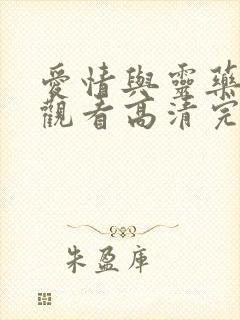 愛情與靈藥
觀看高清完
朱盈庫